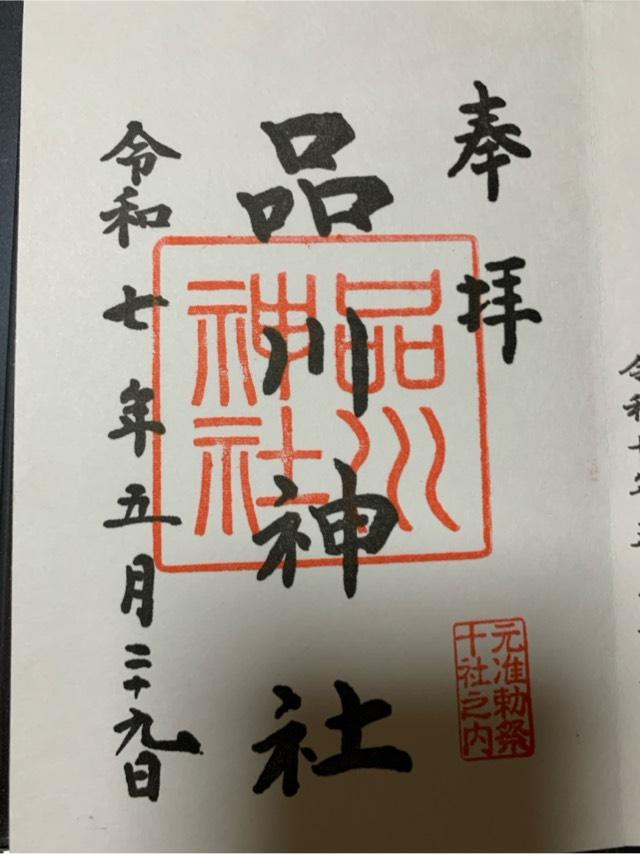 奉拝
品川神社
品川
神社
元准勅祭
十社之内
令和七年五月二十九日